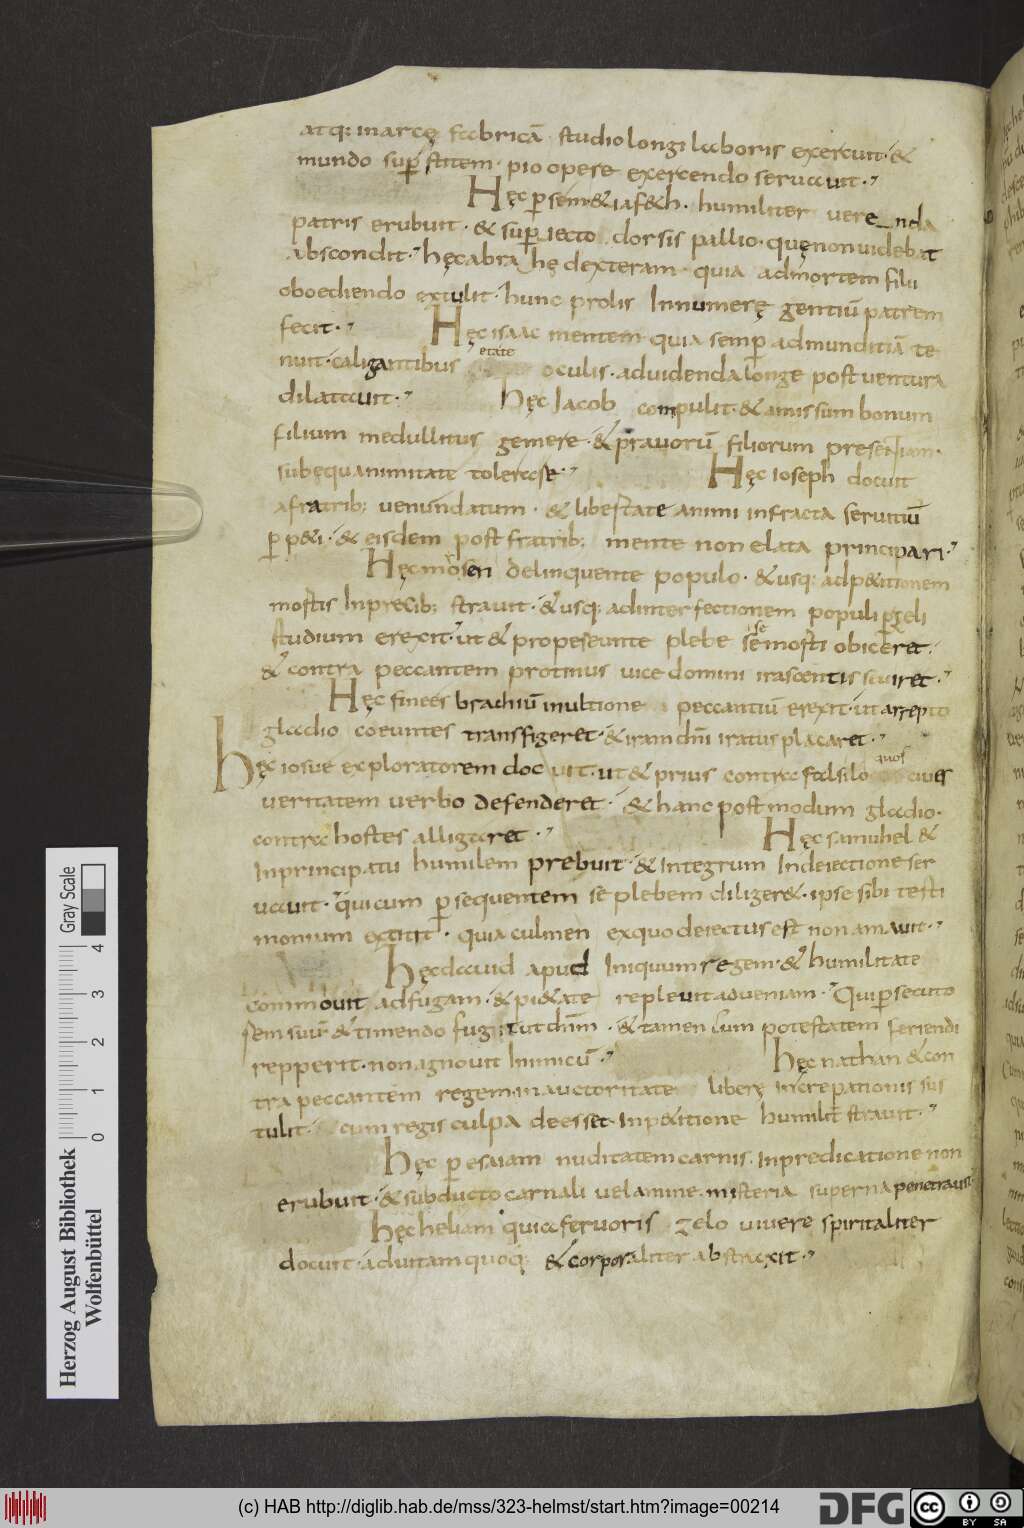 atq; inarcę fabricā studio longi laboris exercuit · &
mundo sup stitem · pio opere exercendo seruauit ·
Hęc p sem · & iaf&h · humiliter vere_nda
patris erubuit · & sup iecto dorsis pallio · quę non uidebat
abscondit · hęc abrahę dexteram · quia admortem filii
oboediendo extulit · hunc prolis Innumerę gentiū patrem
fecit ·
Hęc isaac mentem · quia semp admunditiā te
nuit · caligantibus
etate
oculis · aduidenda longe post uentura
dilatauit ·
hęc Jacob compulit · & amissum bonum
filium medullitus gemere · & prauorū filiorum presentiam ·
subequanimitate tolerasse ·
Hęc ioseph docuit
afratrib; venundatum · & libertate animi infracta seruitiū
p p&i · & eisdem post fratrib; mente non elata principari ·
Hęc mosen delinquente populo · & usq; adp&itionem
mortis Inprecib; strauit · & usq; adinterfectionem populi p zeli
studium erexit · ut & pro pereunte plebe
se
se morti obiceret ·
& contra peccantem protinus uice domini irascentis seuiret ·
Hęc finees brachiū inultione peccantiū erexit · ut arrepto
gladio coeuntes transfigeret · & iram dnī iratus placaret ·
Hęc iosue exploratorem docuit · ut & prius contra falsilo
quos
ciues
ueritatem uerbo defenderet · & hanc postmodum gladio ·
contra hostes alligaret ·
Hęc samuhel &
Inprincipatu humilem prebuit · & Integrum Indeiectione ser
uauit · qui cum p sequentem se plebem diliger& · ipse sibi testi
monium extitit · quia culmen exquo deiectus est non amauit ·
hęc dauid apud Iniquum regem · & humilitate
commouit adfugam · & pi&ate repleuit adueniam · Qui p secuto
rem suū & timendo fugiit ut dnm̄ · & tamen cum potestatem feriendi
repperit · non agnouit Inimicū ·
hęc nathan & con
tra peccantem regem · in auctoritate liberę increpationis sus
tulit · cum regis culpa deesset · Inp&itione humilit strauit ·
hęc p esaiam nuditatem carnis · Inpredicatione non
erubuit · & subducto carnali uelamine · misteria superna penetrauit
hęc heliam quia feruoris zelo uiuere spiritaliter
docuit · aduitam quoq; & corporaliter abstraxit ·
Herzog August Bibliothek
Wolfenbüttel
0 1 2 3 4
Gray Scale
(c) HAB http://diglib.hab.de/mss/323-helmst/start.htm?image=00214
DFG
cc BY SA